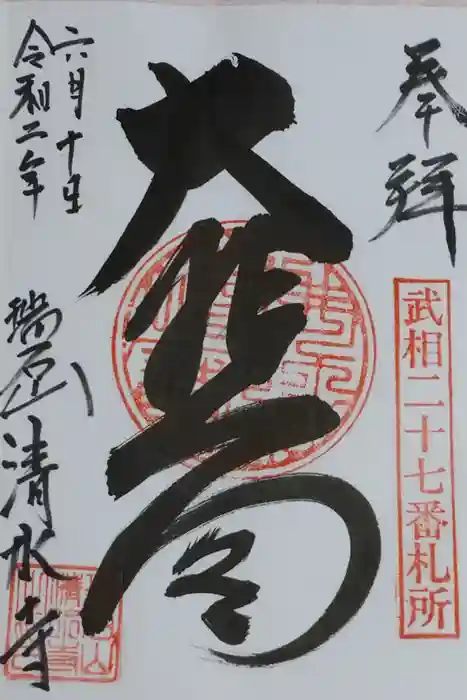 奉拝
武相二十七番札所
大悲閣
令和二年
六月十日
瑞石山清水寺